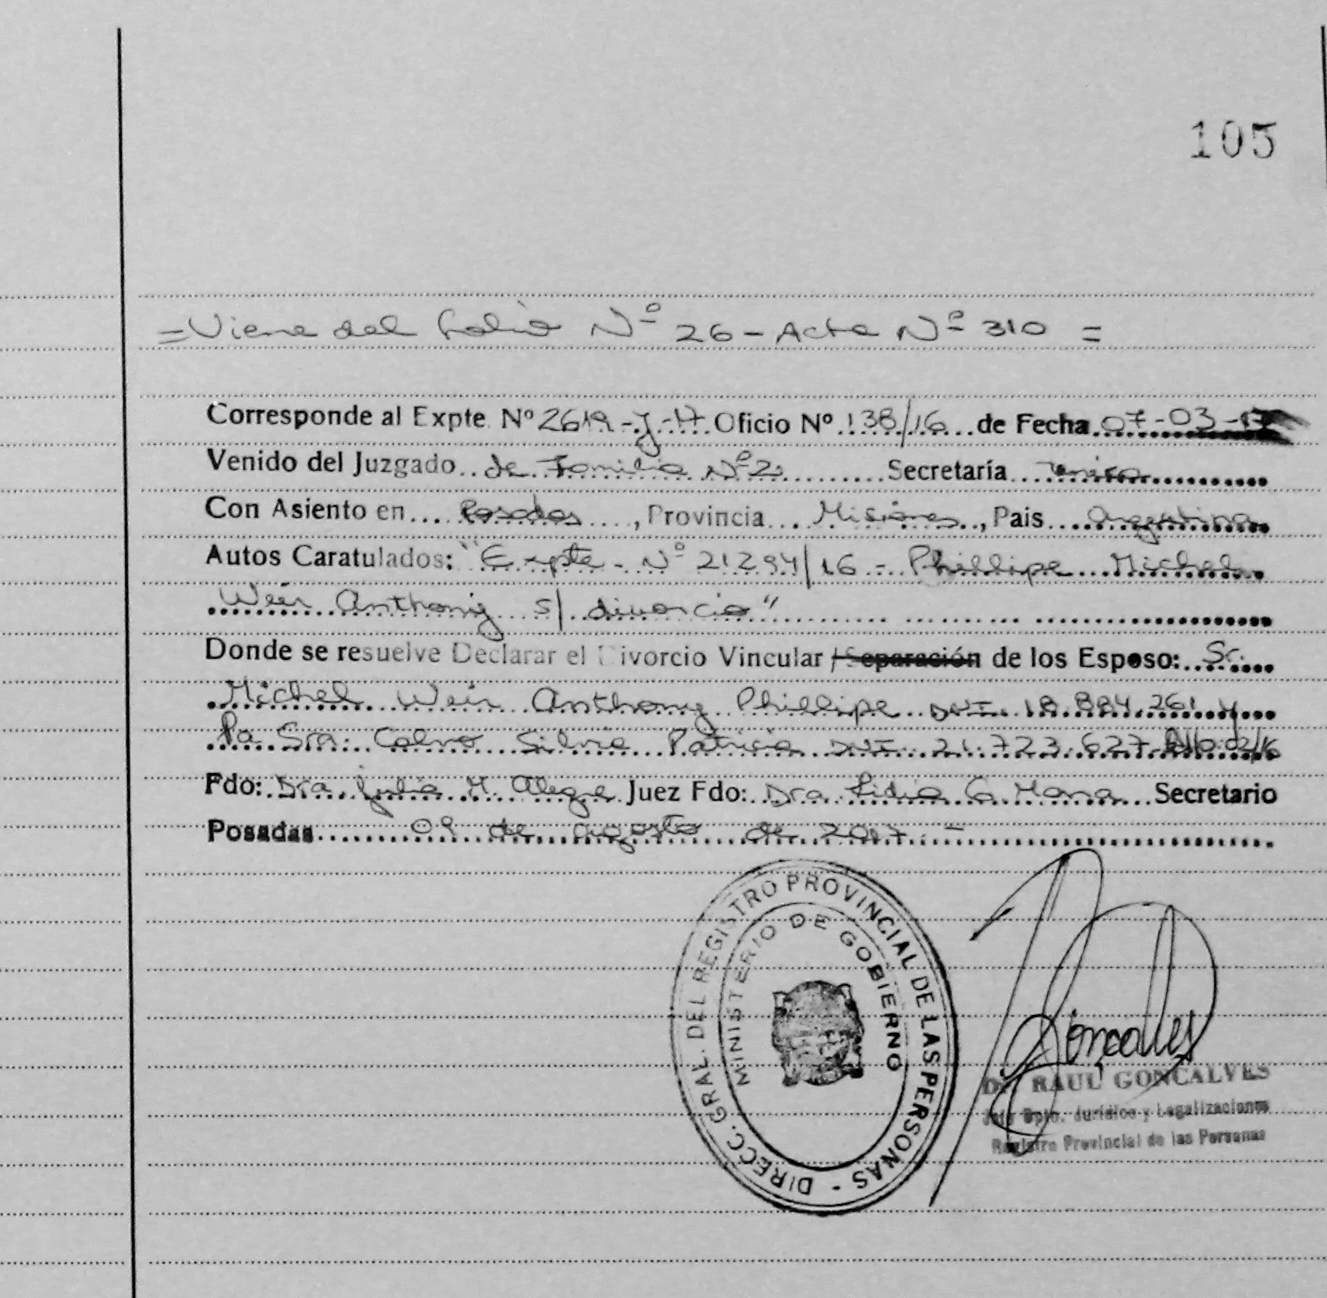 105
=Viene del folio Nº 26 - Acta Nº 310 =
Corresponde al Expte. Nº 2619-J-17 Oficio Nº 138/16 de Fecha 07-03-17
Venido del Juzgado de Familia Nº 2 Secretaría única
Con Asiento en Posadas, Provincia Misiones, Pais Argentina
Autos Caratulados: "Expte - Nº 21294/16 - Phillipe Michel
Weir Anthony s/ divorcio"
Donde se resuelve Declarar el Divorcio Vincular /Separación de los Esposo: Sr.
Michel Weir Anthony Phillipe DNI 18.884.261 y
la Sra: Calvo Silvia Patricia DNI 21.723.627
Fdo: Dra. Julia M. Alegre Juez Fdo: Dra. Lidia G. Mana Secretario
Posadas 09 de agosto de 2017 -
DIRECC. GRAL. DEL REGISTRO PROVINCIAL DE LAS PERSONAS -
MINISTERIO DE GOBIERNO
Gonçalves
Dr. RAUL GONCALVES
Jefe Dpto. Jurídico y Legalizaciones
Registro Provincial de las Personas